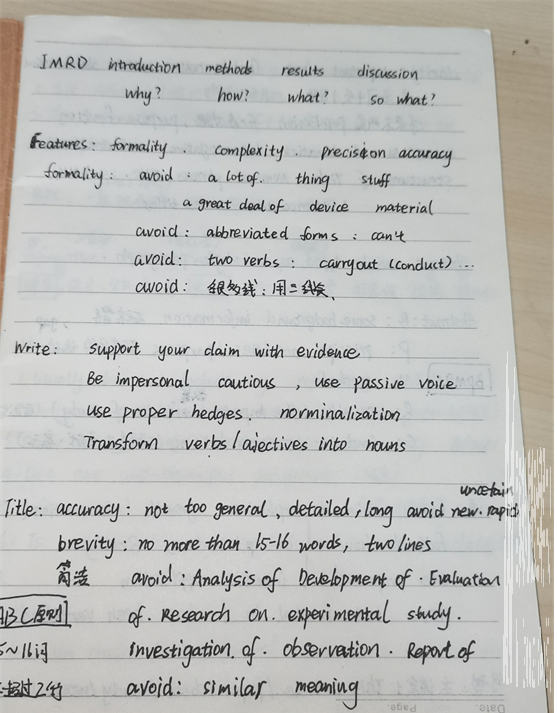 IMRD introduction methods results discussion
why? how? what? so what?
Features: formality. complexity. precision accuracy
formality: avoid: a lot of. thing stuff
a great deal of device material
avoid: abbreviated forms: can't
avoid: two verbs: carryout (conduct)...
avoid: 用三线表、
Write: support your claim with evidence
Be impersonal cautious, use passive voice
use proper hedges. norminalization
Transform verbs/ajectives into nouns
uncetain
Title: accuracy: not too general, detailed, long avoid new. rapid
brevity: no more than 15-16 words, two lines
简洁 avoid: Analysis of Development of. Evaluation
ABC(原则) of. Research on. experimental study.
5~16词 investigation of. observation. Report of
超过2行 avoid: similar meaning
Date: Page: